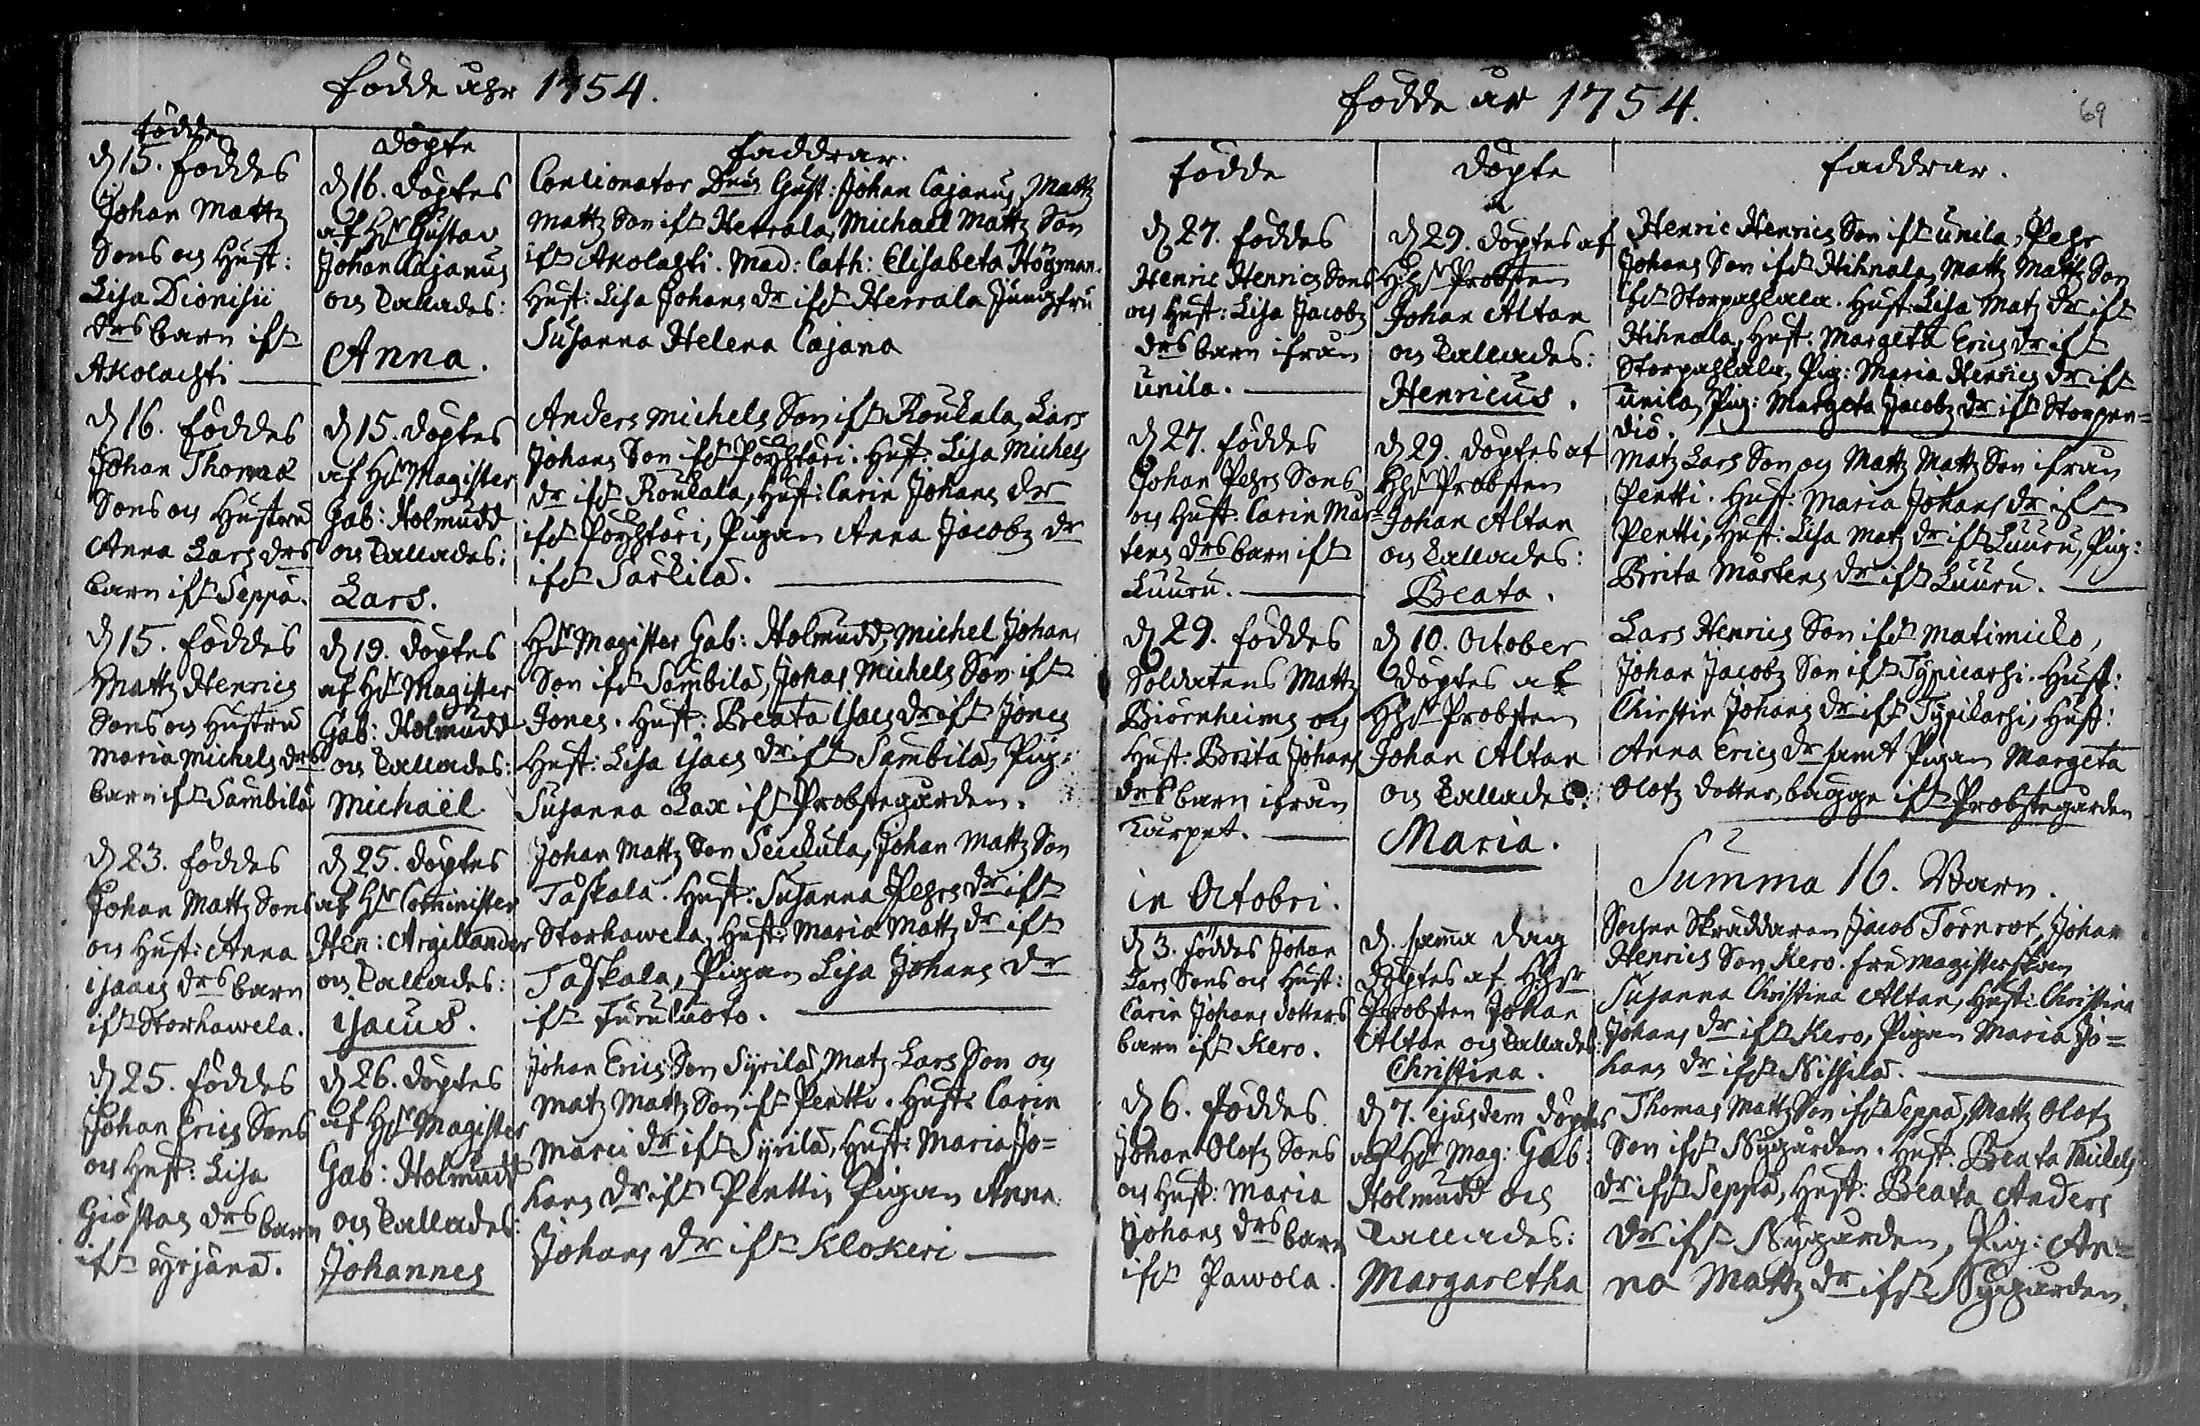 födde åhr 1754.
födde
döpte
faddrar.
d 15. föddes
Johan Mattz
Sons och Hust:
Lisa Dionisii
drs barn ifr
Akolachti
d 16. döptes
af Hr Gustav
Johan Cajanus
och kallades:
Anna.
Concionator Dnus Gust: Johan Cajanus, Mattz
Mattz Son ifr Herrala, Michael Mattz Son
ifr Akolahti. Mad: Cath: Elisabeta Högman.
Hust: Lisa Johans dr ifr Herrala Jungfru
Susanna Helena Cajana
d 16. föddes
Johan Thomas
Sons och Hustru
Anna Lars drs
barn ifr Seppä.
d 15. döptes
af Hr Magister
Gab: Holmudd
och kallades:
Lars.
Anders Michels Son ifr Roukala, Lars
Johans Son ifr Pöyhtäri. Hust: Lisa Michels
dr ifr Roukala, Hust: Carin Johans dr
ifr Pöyhtäri, Pigan Anna Jacobz dr
ifr Sarkila.
d 15. föddes
Mattz Henrics
Sons och Hustru
Maria Michels drs
barn ifr Sambila
d 19. döptes
af Hr Magister
Gab: Holmudd
och kallades:
Michaël
Hr Magister Gab: Holmudd, Michel Johans
Son ifr Sambila, Johas Michels Son ifr
Jones. Hust: Beata Isacs dr ifr Jones
Hust: Lisa Isacs dr ifr Sambila, Pig:
Susanna Lax ifr Probstegården.
d 23. föddes
Johan Mattz Sons
och Hust: Anna
Isaacs drs barn
ifr Storhawela.
d 25. döptes
af Hr Comminister
Hen: Argillander
och kallades:
Isacus.
Johan Mattz Son Seickula, Johan Mattz Son
Taskala. Hust: Susanna Pehrs dr ifr
Storhawela, Hust: Maria Mattz dr ifr
Taskala, Pigan Lisa Johans dr
ifr Furuluoto.
d 25. föddes
Johan Erics Sons
och Hust: Lisa
Giöstas drs barn
ifr Yrjänä.
d 26. döptes
af Hr Magister
Gab: Holmudd
och kallades:
Johannes
Johan Erics Son Syrilä, Matz Lars Son och
Matz Mattz Son ifr Pentti. Hust: Carin
Marci dr ifr Syrilä, Hust: Maria Jo=
hans dr ifr Pentti, Pigan Anna
Johans dr ifr Klokeri
födde år 1754.
69
födde
döpte
faddrar.
d 27. föddes
Henric Henrics Sons
och Hust: Lisa Jacobz
drs barn ifrån
Unila.
d 29. döptes af
HHr Probsten
Johan Altan
och kallades:
Henricus.
Henric Henrics Son ifr Unila, Pehr
Johans Son ifr Hihnala, Mattz Mattz Son
ifr Storpahlala. Hust: Lisa Matz dr ifr
Hihnala, Hust: Margeta Erics dr ifr
Storpahlala, Pig: Maria Henrics dr ifr
Unila, Pig: Margeta Jacobz dr ifr Storpen=
dio.
d 27. föddes
Johan Pehrs Sons
och Hust: Carin Mar=
tens drs barn ifr
Luuru.
d 29. döptes af
HHr Probsten
Johan Altan
och kallades:
Beata.
Matz Lars Son och Mattz Mattz Son ifrån
Pentti. Hust: Maria Johans dr ifr
Pentti, Hust: Lisa Matz dr ifr Luuru, Pig:
Brita Mårtens dr ifr Luuru.
d 29. föddes
Soldatens Mattz
Biörnheims och
Hust: Brita Johans
drs barn ifrån
Karpet.
d 10. October
döptes af
HHr Probsten
Johan Altan
och kallades:
Maria.
Lars Henrics Son ifr Matimicko,
Johan Jacobz Son ifr Typicarhi. Hust:
Chirstin Johans dr ifr Typikarhi, Hust:
Anna Erics dr samt Pigan Margeta
Olofz dotter bagge ifr Probstegården
Summa 16. Barn.
in Octobri.
d 3. föddes Johan
Lars Sons och Hust:
Carin Johans dotters
barn ifr Kero.
d. samma dag
döptes af HHr
Probsten Johan
Altan och kallades:
Christina.
Sochne Skräddaren Jacob Törnrot, Johan
Henrics Son Kero. fru Magisterskan
Susanna Christina Altan, Hust: Christina
Johans dr ifr Kero, Pigan Maria Jo=
hans dr ifr Nissilä.
d 6. föddes
Johan Olofz Sons
och Hust: Maria
Johans drs barn
ifr Pawola.
d 7. ejusdem döptes
af Hr Mag: Gab:
Holmudd och
kallades:
Margaretha
Thomas Mattz Son ifr Seppä, Mattz Olofz
Son ifr Nygården. Hust: Beata Michels
dr ifr Seppä, Hust: Beata Anders
dr ifr Nygården, Pig: An=
na Mattz dr ifr Nygården.